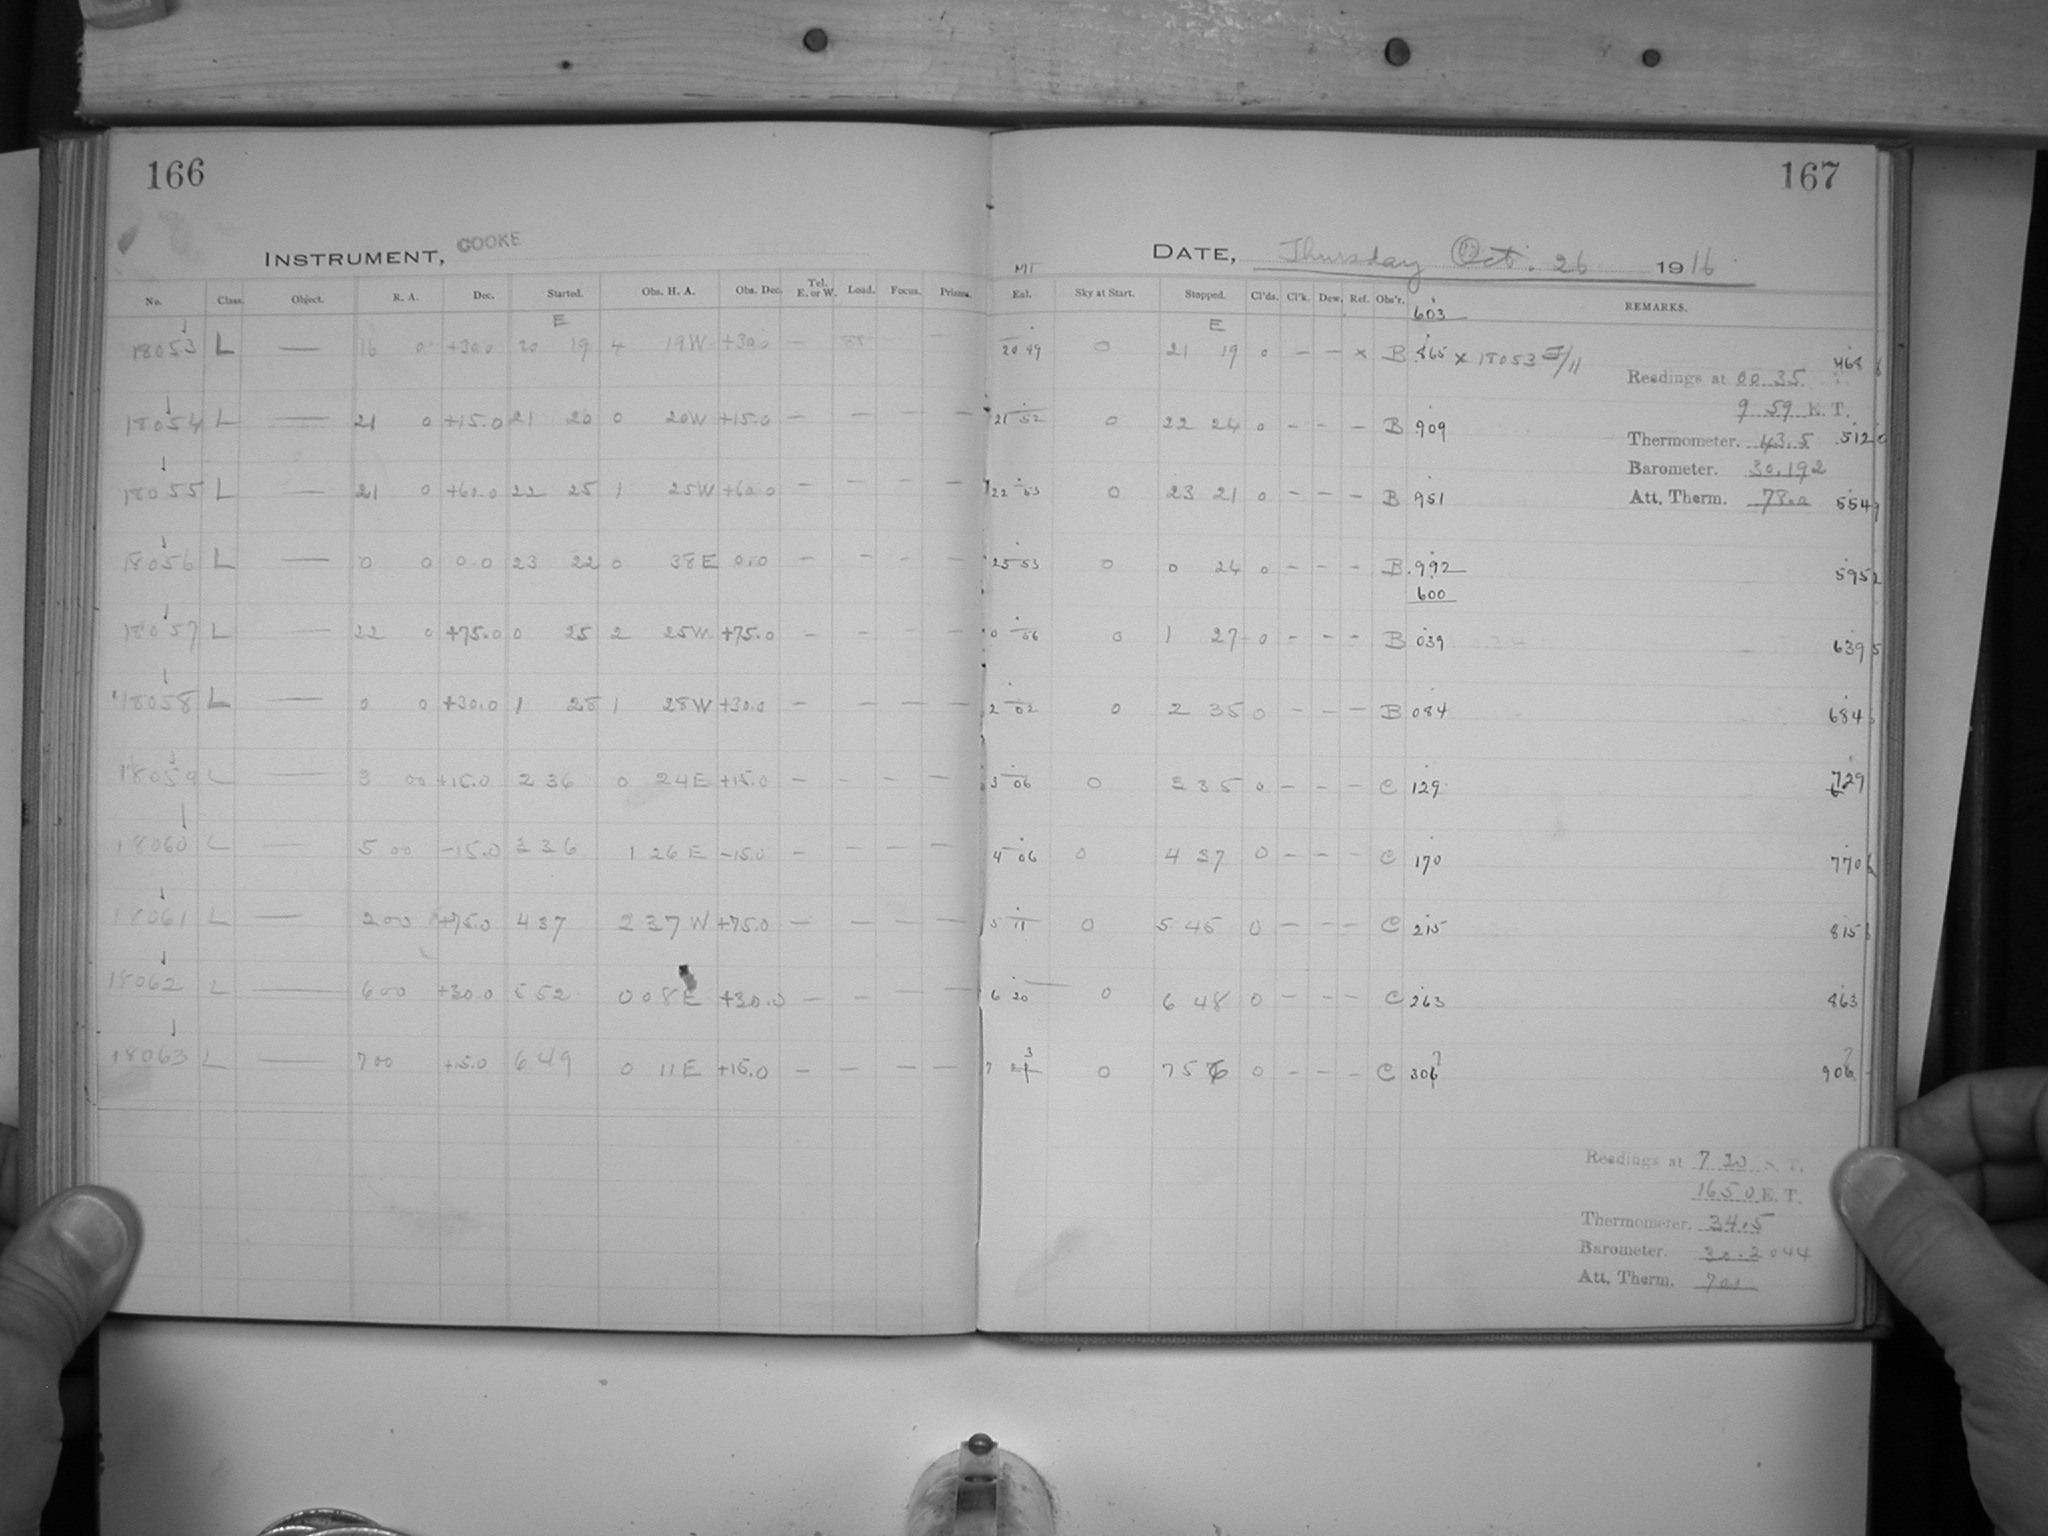 166
167
INSTRUMENT, COOKE
DATE, Thursday Oct. 26 1916
No. Class. Object. R. A. Dec. Started. Obs. H. A. Obs. Dec. Tel. E. or W. Load. Focus. Prisms.
MT
Eal. Sky at Start. Stopped. Cl'ds. Cl'k. Dew. Ref. Obs'r. REMARKS.
603
E
E
18053 L — 16 0 +30.0 20 19 4 19W +30.0 — — —
20 49 0 21 19 0 — — × B .865 × 18053 468
Readings at 00 35
9 59 E. T.
18054 L — 21 0 +15.0 21 20 0 20W +15.0 — — — —
21 52 0 22 24 0 — — — B 909
Thermometer. 43.5 512
Barometer. 30.192
18055 L — 21 0 +60.0 22 25 1 25W +60.0 — — — —
22 53 0 23 21 0 — — — B 951
Att. Therm. 554
18056 L — 0 0 0.0 23 22 0 38E 0.0 — — — —
0 0 24 0 — — — B .992 595
600
18057 L — 22 0 +75.0 0 25 2 25W +75.0 — — — —
0 56 0 1 27 0 — — — B 039 639
18058 L — 0 0 +30.0 1 28 1 28W +30.0 — — — —
2 02 0 2 35 0 — — — B 084 684
18059 L — 3 00 +15.0 2 36 0 24E +15.0 — — — —
3 06 0 3 35 0 — — — C 129 729
18060 L — 5 00 -15.0 3 36 1 26E -15.0 — — — —
4 06 0 4 37 0 — — — C 170 770
18061 L — 2 00 +75.0 4 37 2 37W +75.0 — — — —
5 11 0 5 45 0 — — — C 215 815
18062 L — 6 00 +30.0 5 52 0 08E +30.0 — — — —
6 20 0 6 48 0 — — — C 263 863
18063 L — 7 00 +15.0 6 49 0 11E +15.0 — — — —
7 0 7 0 — — — C
Readings at 7 30 S. T.
16 50 E. T.
Thermometer. 34.5
Barometer.
Att. Therm.